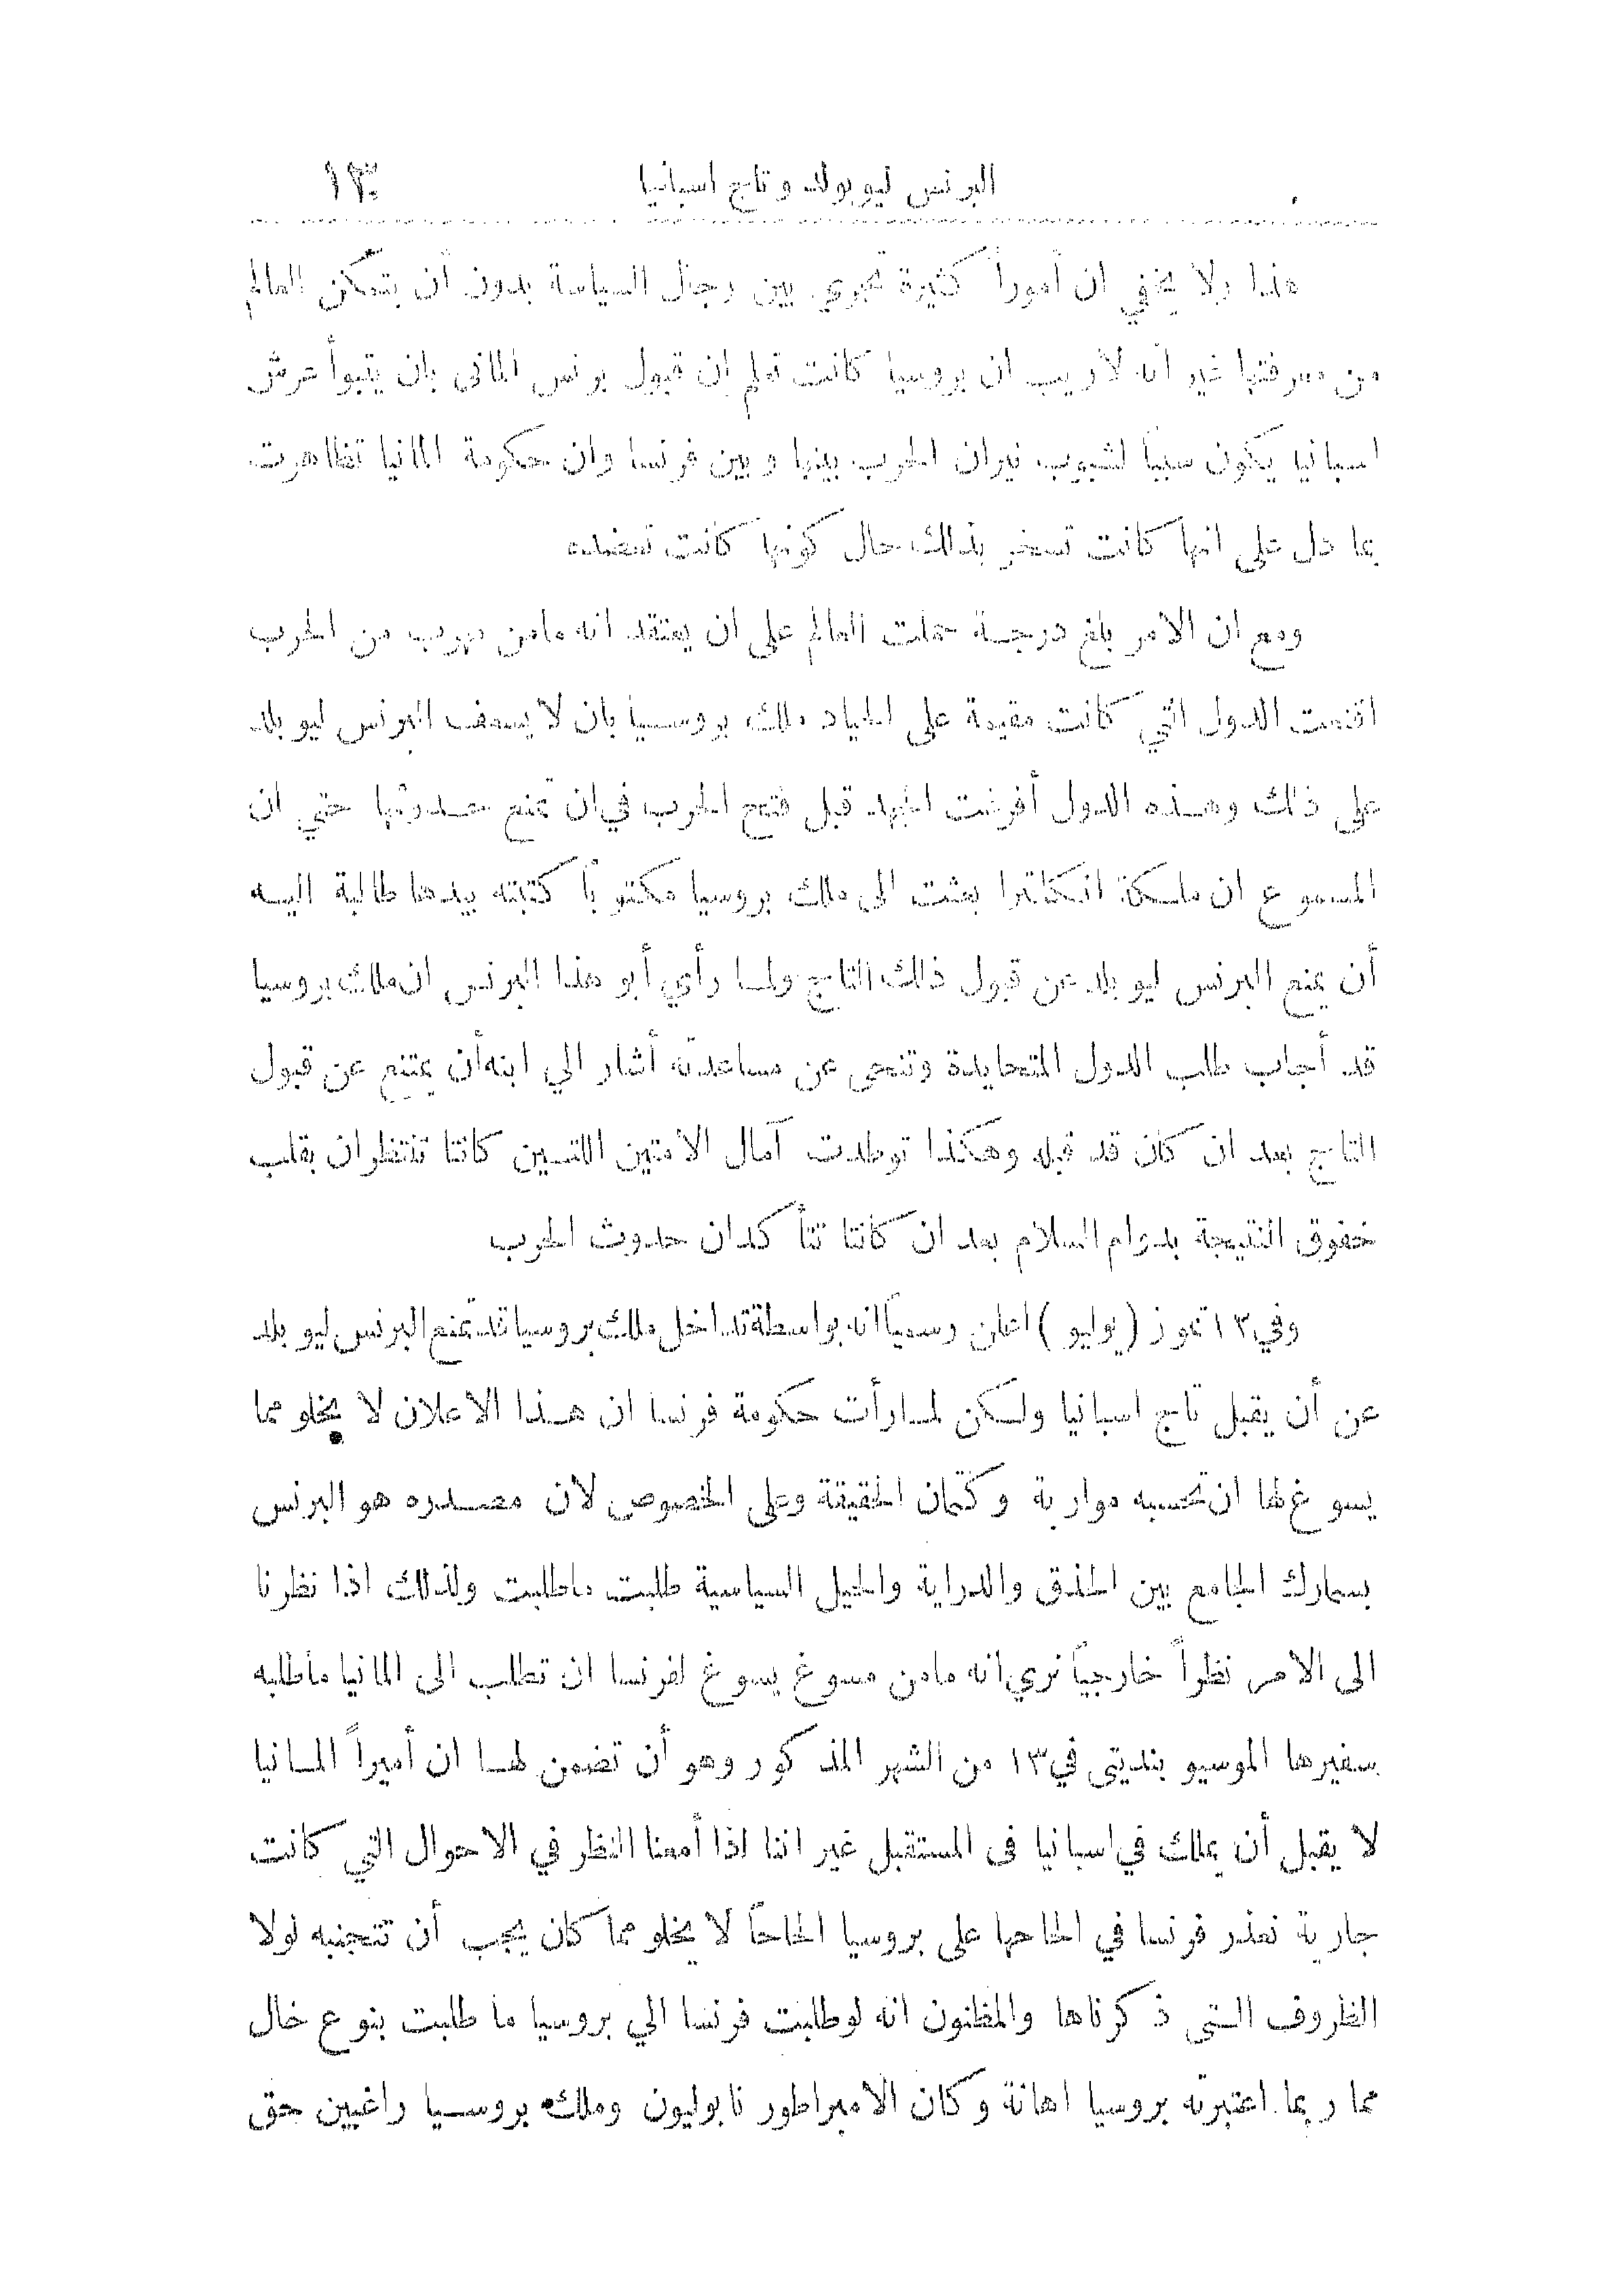 البرنس ليوبولد وتاج اسبانيا ١٣
هذا ولا يخفي ان أموراً كثيرة تجري بين رجال السياسة بدون أن يتمكن العالم
من معرفتها غير انه لاريب ان بروسيا كانت تعلم ان قبول برنس المانى بان يتبوأ عرش
اسبانيا يكون سبباً لشبوب نيران الحرب بينها وبين فرنسا وان حكومة المانيا تظاهرت
بما دل على انها كانت تسخر بذلك حال كونها كانت تعضده
ومع ان الامر بلغ درجة حملت العالم على ان يعتقد انه مامن مهرب من الحرب
اقنعت الدول التي كانت مقيمة على الحياد ملك بروسيا بان لا يسعف البرنس ليوبلد
على ذلك وهذه الدول أفرغت الجهد قبل فتح الحرب في ان تمنع حدوثها حتي ان
المسموع ان ملكة انكلترا بعثت الى ملك بروسيا مكتوباً كتبته بيدها طالبة اليه
أن يمنع البرنس ليوبلد عن قبول ذلك التاج ولما رأي أبو هذا البرنس ان ملك بروسيا
قد أجاب طلب الدول المتحايدة وتنحى عن مساعدته أشار الي ابنه أن يمتنع عن قبول
التاج بعد ان كان قد قبله وهكذا توطدت آمال الامتين اللتين كانتا تنتظران بقلب
خفوق النتيجة بدوام السلام بعد ان كانتا تتأكدان حدوث الحرب
وفي ١٢ تموز (يوليو) اعلن رسمياً انه بواسطة تداخل ملك بروسيا قد تمنع البرنس ليوبلد
عن أن يقبل تاج اسبانيا ولكن لما رأت حكومة فرنسا ان هذا الاعلان لا يخلو مما
يسوغ لها ان تحسبه مواربة وكتمان الحقيقة وعلى الخصوص لان مصدره هو البرنس
بسمارك الجامع بين الحذق والدراية والحيل السياسية طلبت ماطلبت ولذلك اذا نظرنا
الى الامر نظراً خارجياً نري انه مامن مسوغ يسوغ لفرنسا ان تطلب الى المانيا ماطلبه
سفيرها الموسيو بنديتى في ١٣ من الشهر المذكور وهو أن تضمن لها ان أميراً المانيا
لا يقبل أن يملك في اسبانيا فى المستقبل غير اننا اذا أمعنا النظر في الاحوال التي كانت
جارية نعذر فرنسا في الحاحها على بروسيا الحاحاً لا يخلو مما كان يجب أن تتجنبه لولا
الظروف التى ذكرناها والمظنون انه لوطلبت فرنسا الي بروسيا ما طلبت بنوع خال
مما ربما اعتبرته بروسيا اهانة وكان الامبراطور نابوليون وملك بروسيا راغبين حق